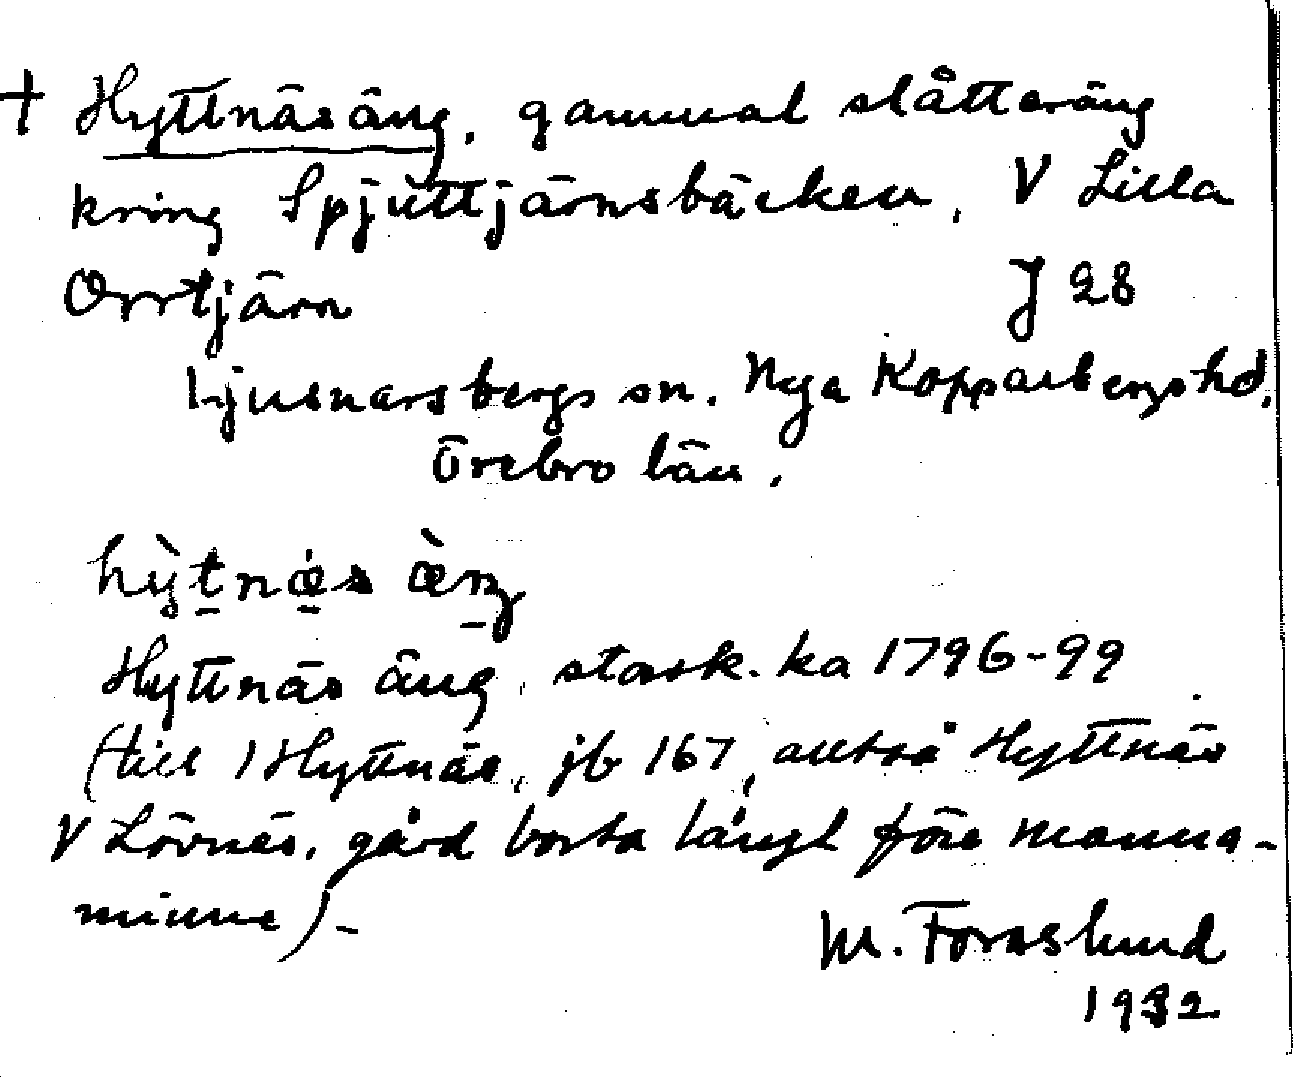 † Hyttnäsäng, gammal slåtteräng
kring Spjuttjärnsbäcken, V Lilla
Orrtjärn J 28
Ljusnarsbergs sn. Nya Kopparbergs hd,
Örebro län.
hỳtnǽs æ̀ŋ
Hyttnäs äng, storsk. ka 1796-99
(till 1 Hyttnäs, jb 167, alltså Hyttnäs
V Lövnäs, gård borta långt före manna-
minne)-
M. Forsslund
1932